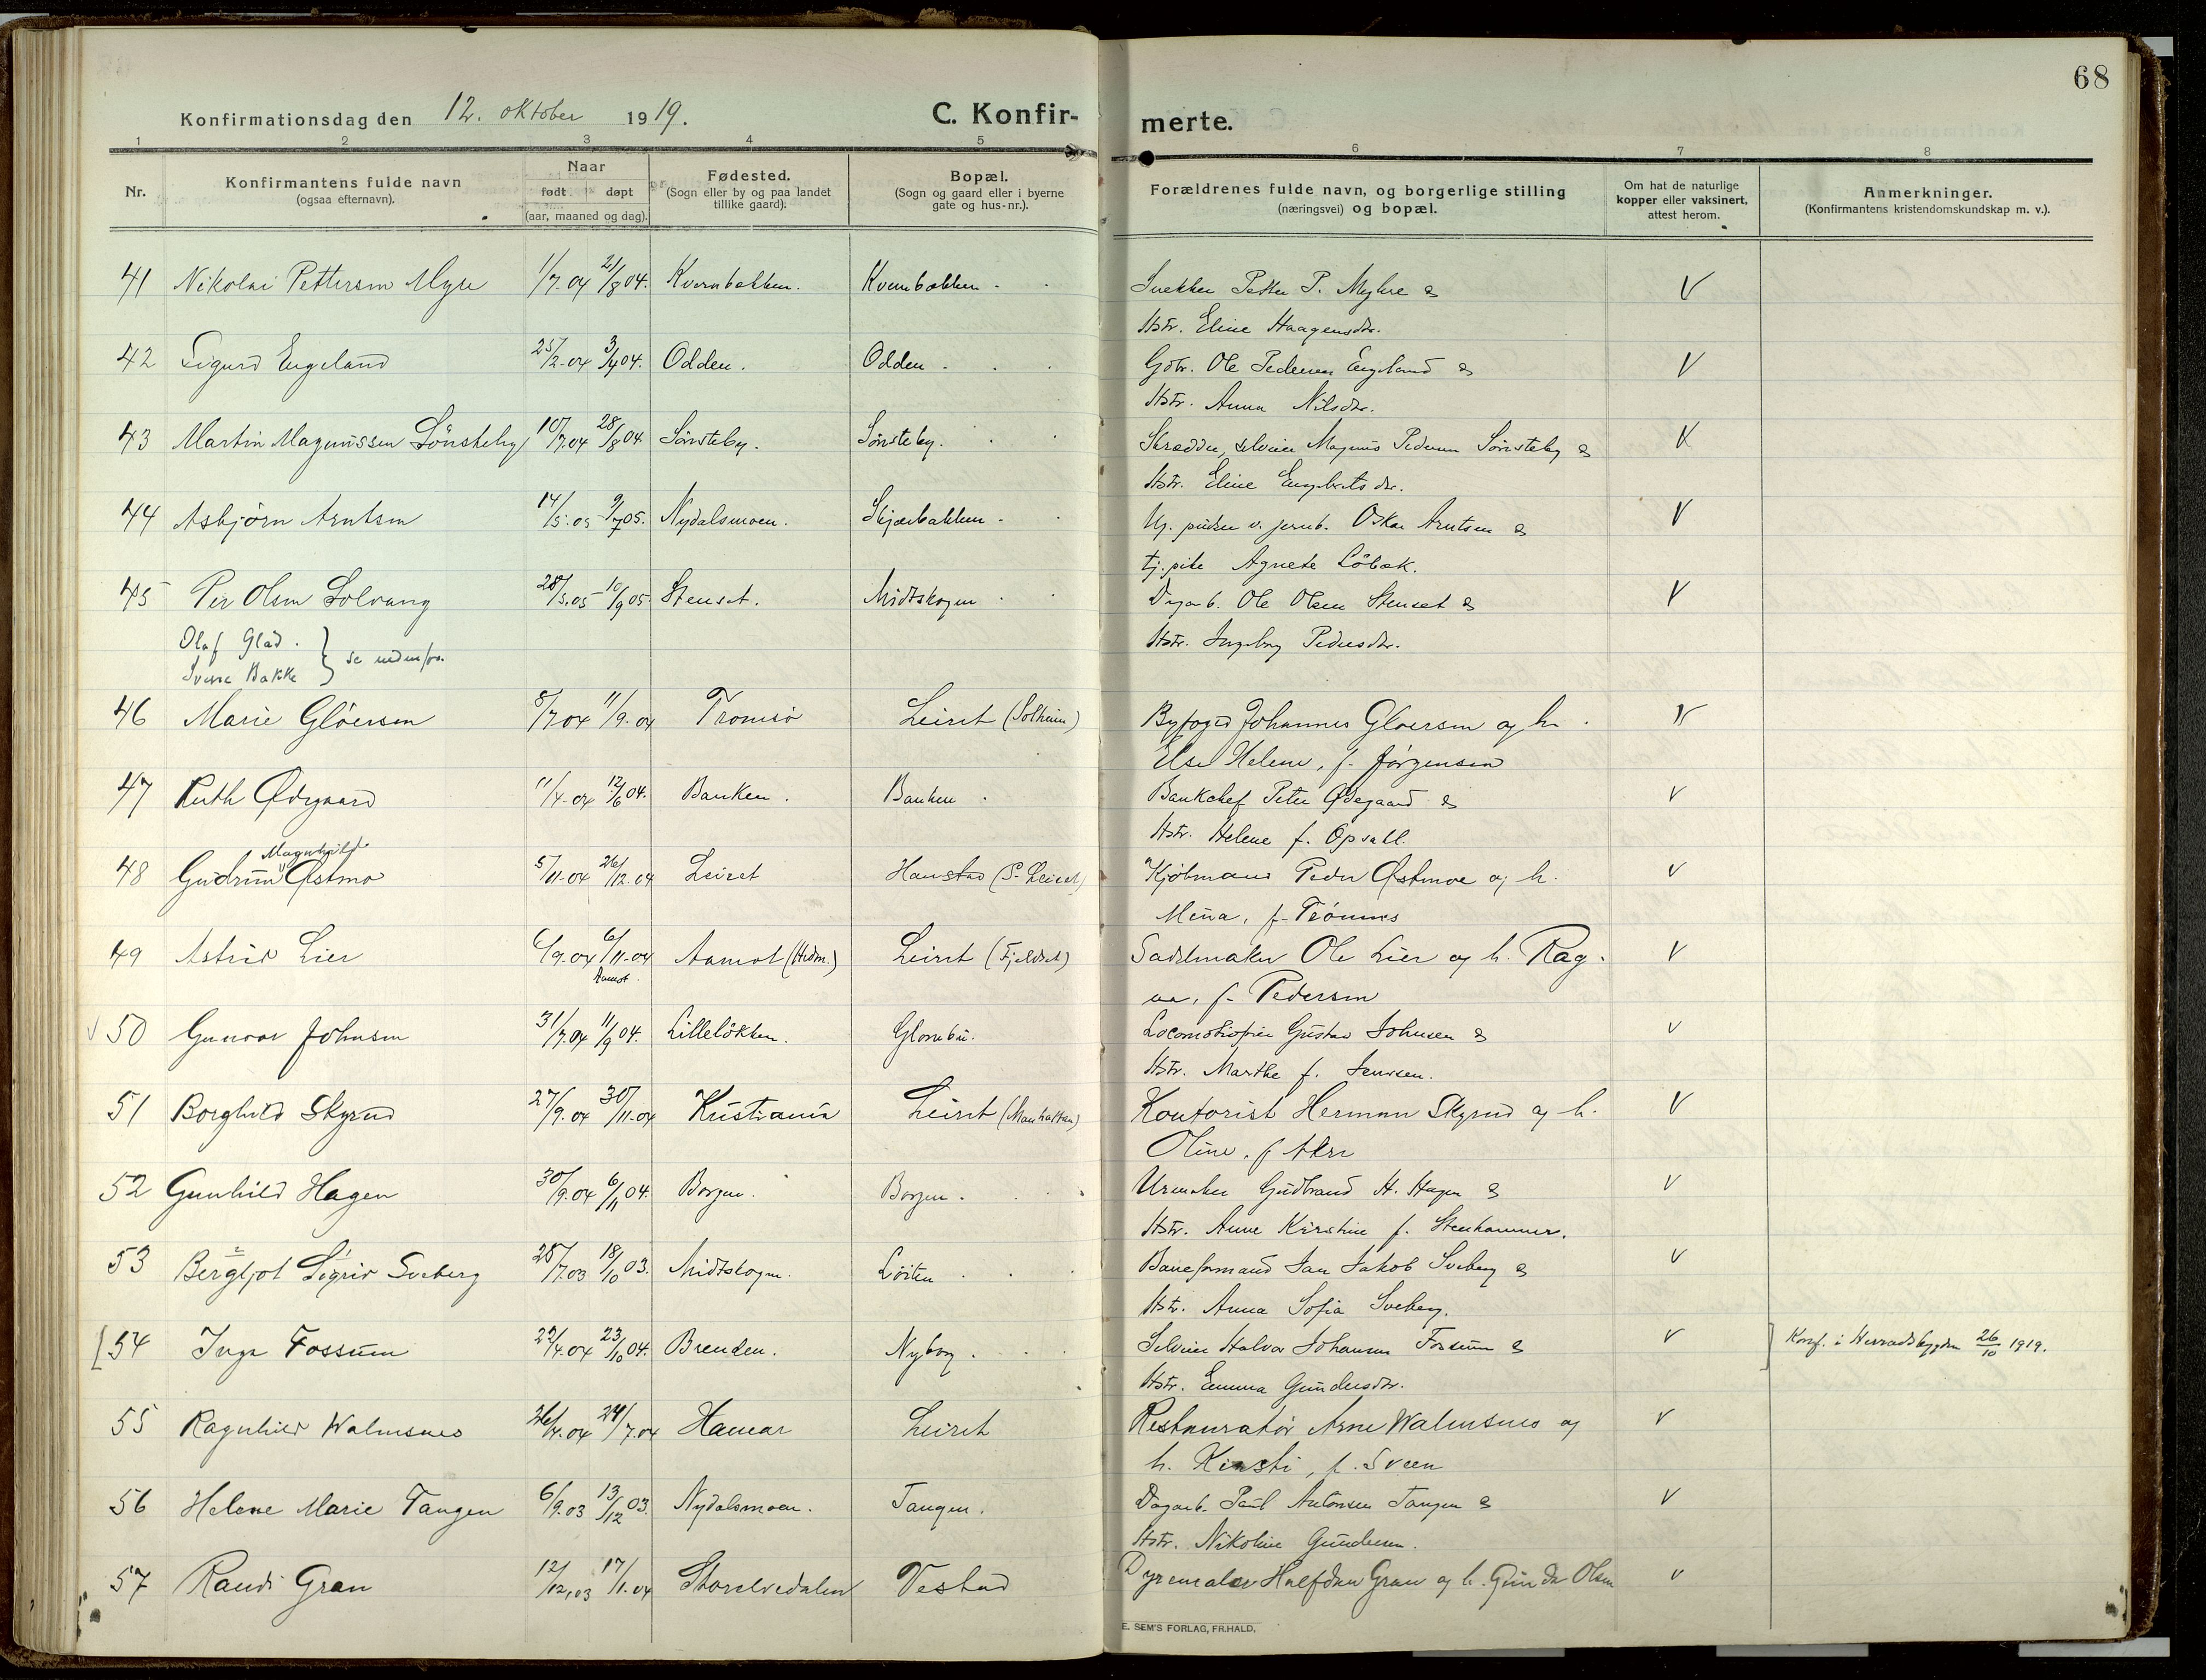 68
Konfirmationsdag den 12. oktober 1919.
C. Konfir-merte.
1 2 3 4 5 6 7 8
Nr.
Konfirmantens fulde navn
(ogsaa efternavn).
Naar
født døpt
(aar, maaned og dag).
Fødested.
(Sogn eller by og paa landet
tillike gaard).
Bopæl.
(Sogn og gaard eller i byerne
gate og hus-nr.).
Forældrenes fulde navn, og borgerlige stilling
(næringsvei) og bopæl.
Om hat de naturlige
kopper eller vaksinert,
attest herom.
Anmerkninger.
(Konfirmantens kristendomskundskap m. v.).
41 Nikolai Pettersen Myre 1/7.04 21/8 04. Kvernbakken. Kvernbakken. Snekker Petter P. Myhre & V
Hstr. Eline Haagensdtr.
42 Sigurd Engeland 25/2-04 3/4 04. Odden. Odden. Gdbr. Ole Pedersen Engeland & V
Hstr. Anna Nilsdtr.
43 Martin Magnussen Sønsteby 10/7.04 28/8 04 Sønsteby. Sønsteby. Skrædder, selveier Magnus Pedersen Sønsteby & V
Hstr. Eline Engebretsdtr.
44 Asbjörn Arntsen 14/5.05 9/7 05. Nydalsmoen. Skjærbakken. Oskar Arntsen & V
tj. pike Agnete Löbak.
45 Per Olsen Solvang 28/5.05 10/9 05. Stenset. Midtskogen. Dagarb. Ole Olsen Stenset & V
Hstr. Ingeborg Pedersdtr.
Olaf Glad.
Sverre Bakke } se nedenfor.
46 Marie Glöersen 8/7 04 11/9-04 Tromsö Leiret (Solheim) Byfoged Johannes Gloersen og h. V
Else Helene, f. Jörgensen
47 Ruth Ødegaard 11/4-04 12/6 04. Banken. Banken. Bankchef Peter Ødegaard & V
Hstr. Helene f. Opsahl.
Magnhild
48 Gudrun Østmo 5/11-04 26/12-04 Leiret Hanstad (S. Leiret) Kjöbmand Peder Østmoe og h. V
Mina, f. Trönnes
49 Astrid Lier 6/9-04 6/11-04 Aamot (Hedm.) Leiret (Fjeldset) Sadelmaker Ole Lier og h. Rag- V
Aamot.
na, f. Pedersen
50 Gunvor Johnsen 31/7.04 11/9 04. Lilleløkken. Glombu. Locomotivfører Gustav Johnsen & V
Hstr. Marthe f. Jensen.
51 Borghild Skyrud 27/9-04 30/11-04 Kristiania Leiret (Manhattan) Kontorist Herman Skyrud og h. V
Oline, f. Aker
52 Gunhild Hagen 30/9.04 6/11 04. Borgen. Borgen. Urmaker Gudbrand H. Hagen & V
Hstr. Anne Kirstine f. Stenhammer.
53 Bergljot Sigrid Sveberg 28/7.03 18/10 03. Midtskogen. Löiten Baneformand Jan Jakob Sveberg & V
Hstr. Anna Sofia Sveberg.
[54 Inga Fossum 22/4.04 23/10 04. Brenden. Nyborg. Selveier Halvor Johansen Fossum & V ] Konf. i Herradsbygden 26/10 1919.
Hstr. Emma Gundersdtr.
55 Ragnhild Walmsnes 26/4.04 24/7.04 Hamar Leiret Restauratör Arne Walmsnes og V
h. Kirsti, f. Sveen
56 Helene Marie Tangen 6/9.03 13/12 03. Nydalsmoen. Tangen. Dagarb. Paul Antonsen Tangen & V
Hstr. Nikoline Gundersen.
57 Randi Gran 12/12,03 17/1.04 Storelvedalen Vestad Dyremaler Halfdan Gran og h. Gunda Olsen V
E. SEM'S FORLAG, FR.HALD.